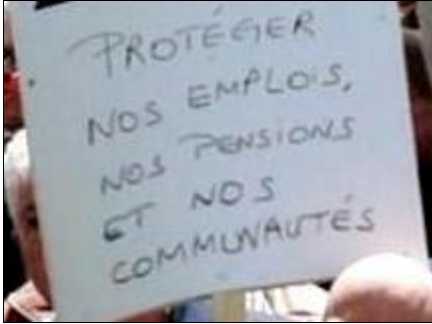 PROTÉGER
NOS EMPLOIS,
NOS PENSIONS
ET NOS
COMMUNAUTÉS